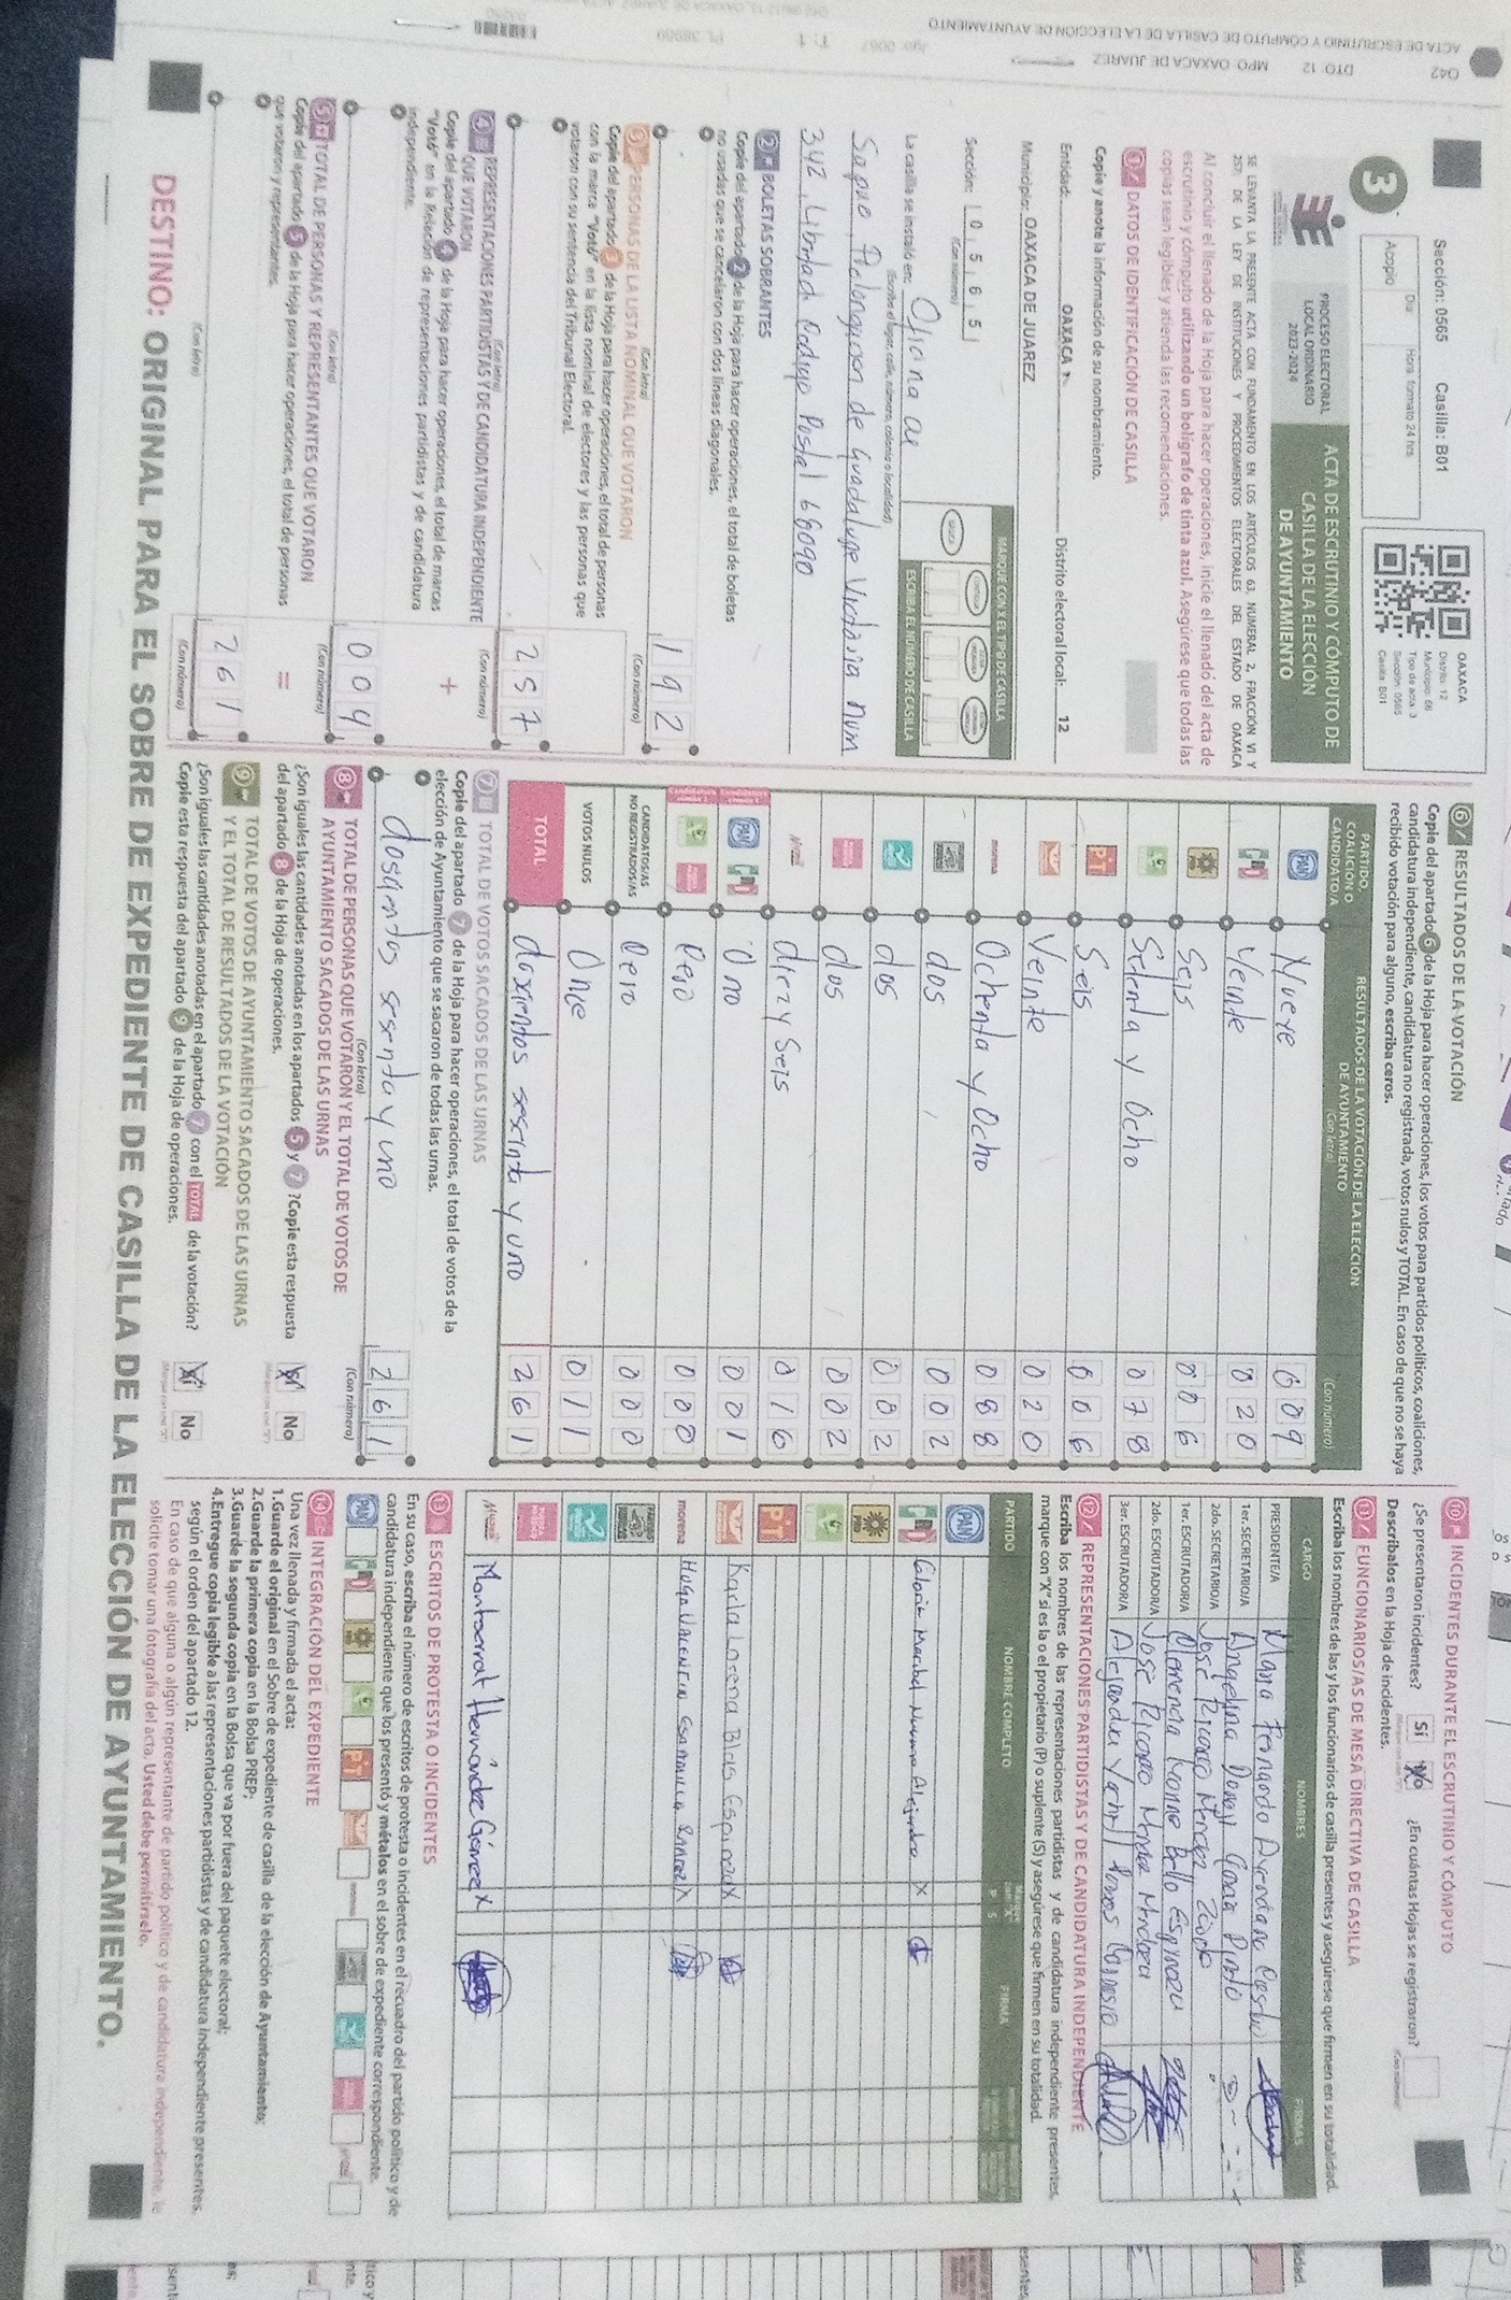 Sección: 0565 Casilla: B01
OAXACA
Distrito: 12
Municipio: 66
Tipo de acta: 3
Sección: 0565
Casilla: B01
3
Acopio
Día
Hora formato 24 hrs
PROCESO ELECTORAL
LOCAL ORDINARIO
2023-2024
ACTA DE ESCRUTINIO Y CÓMPUTO DE
CASILLA DE LA ELECCIÓN
DE AYUNTAMIENTO
SE LEVANTA LA PRESENTE ACTA CON FUNDAMENTO EN LOS ARTÍCULOS 63, NUMERAL 2, FRACCIÓN VI Y
257, DE LA LEY DE INSTITUCIONES Y PROCEDIMIENTOS ELECTORALES DEL ESTADO DE OAXACA
Al concluir el llenado de la Hoja para hacer operaciones, inicie el llenado del acta de
escrutinio y cómputo utilizando un bolígrafo de tinta azul. Asegúrese que todas las
copias sean legibles y atienda las recomendaciones.
1 DATOS DE IDENTIFICACIÓN DE CASILLA
Copie y anote la información de su nombramiento.
Entidad: OAXACA Distrito electoral local: 12
Municipio: OAXACA DE JUAREZ
Sección: 0 5 6 5
(Con número)
MARQUE CON X EL TIPO DE CASILLA
ESCRIBA EL NÚMERO DE CASILLA
La casilla se instaló en: Oficina de
(Escriba el lugar, calle, número, colonia o localidad)
Sapao, Prolongacion de Guadalupe Victoria num
342, Libertad. Codigo Postal 68090
2 BOLETAS SOBRANTES
Copie del apartado 2 de la Hoja para hacer operaciones, el total de boletas
no usadas que se cancelaron con dos líneas diagonales.
1 9 2
(Con letra) (Con número)
3 PERSONAS DE LA LISTA NOMINAL QUE VOTARON
Copie del apartado 3 de la Hoja para hacer operaciones, el total de personas
con la marca "Votó" en la lista nominal de electores y las personas que
votaron con su sentencia del Tribunal Electoral.
2 5 7
(Con letra) (Con número)
4 REPRESENTACIONES PARTIDISTAS Y DE CANDIDATURA INDEPENDIENTE
QUE VOTARON
Copie del apartado 4 de la Hoja para hacer operaciones, el total de marcas
"Votó" en la Relación de representaciones partidistas y de candidatura
independiente.
+
0 0 4
(Con letra) (Con número)
5 TOTAL DE PERSONAS Y REPRESENTANTES QUE VOTARON
Copie del apartado 5 de la Hoja para hacer operaciones, el total de personas
que votaron y representantes.
=
2 6 1
(Con letra) (Con número)
6 RESULTADOS DE LA VOTACIÓN
Copie del apartado 6 de la Hoja para hacer operaciones, los votos para partidos políticos, coaliciones,
candidatura independiente, candidatura no registrada, votos nulos y TOTAL. En caso de que no se haya
recibido votación para alguno, escriba ceros.
PARTIDO, COALICIÓN O CANDIDATO/A
RESULTADOS DE LA VOTACIÓN DE LA ELECCIÓN
DE AYUNTAMIENTO
(Con letra) (Con número)
PAN Nueve 0 0 9
PRI Veinte 0 2 0
PRD Seis 0 0 6
Setenta y Ocho 0 7 8
PT Seis 0 0 6
Veinte 0 2 0
morena Ochenta y Ocho 0 8 8
dos 0 0 2
dos 0 0 2
dos 0 0 2
diez y Seis 0 1 6
PAN PRI Uno 0 0 1
Cero 0 0 0
CANDIDATOS/AS NO REGISTRADOS/AS Cero 0 0 0
VOTOS NULOS Once 0 1 1
TOTAL doscientos sesenta y uno 2 6 1
7 TOTAL DE VOTOS SACADOS DE LAS URNAS
Copie del apartado 7 de la Hoja para hacer operaciones, el total de votos de la
elección de Ayuntamiento que se sacaron de todas las urnas.
doscientos sesenta y uno 2 6 1
(Con letra) (Con número)
8 TOTAL DE PERSONAS QUE VOTARON Y EL TOTAL DE VOTOS DE
AYUNTAMIENTO SACADOS DE LAS URNAS
¿Son iguales las cantidades anotadas en los apartados 5 y 7 ?Copie esta respuesta
del apartado 8 de la Hoja de operaciones. Sí No
9 TOTAL DE VOTOS DE AYUNTAMIENTO SACADOS DE LAS URNAS
Y EL TOTAL DE RESULTADOS DE LA VOTACIÓN
¿Son iguales las cantidades anotadas en el apartado 7 con el TOTAL de la votación?
Copie esta respuesta del apartado 9 de la Hoja de operaciones. Sí No
10 INCIDENTES DURANTE EL ESCRUTINIO Y CÓMPUTO
¿Se presentaron incidentes? Sí No ¿En cuántas Hojas se registraron?
Descríbalos en la Hoja de incidentes.
11 FUNCIONARIOS/AS DE MESA DIRECTIVA DE CASILLA
Escriba los nombres de las y los funcionarios de casilla presentes y asegúrese que firmen en su totalidad.
CARGO NOMBRES FIRMAS
PRESIDENTE/A Maria Fernanda Avendaño Castro
1er. SECRETARIO/A Angelina Pinto
2do. SECRETARIO/A José Ricardo Méndez
1er. ESCRUTADOR/A Clarenda Ivonne Bello Espinoza
2do. ESCRUTADOR/A José Ricardo Mendez Mendoza
3er. ESCRUTADOR/A
12 REPRESENTACIONES PARTIDISTAS Y DE CANDIDATURA INDEPENDIENTE
Escriba los nombres de las representaciones partidistas y de candidatura independiente presentes,
marque con "X" si es la o el propietario (P) o suplente (S) y asegúrese que firmen en su totalidad.
PARTIDO NOMBRE COMPLETO P S FIRMA
PAN
PRI Gloria Maribel Alejandro X
PRD
PT
Karla Lorena Blas Espinoza X
morena Hugo Valencia X
Montserrat Hernández Gómez X
13 ESCRITOS DE PROTESTA O INCIDENTES
En su caso, escriba el número de escritos de protesta o incidentes en el recuadro del partido político y de
candidatura independiente que los presentó y métalos en el sobre de expediente correspondiente.
14 INTEGRACIÓN DEL EXPEDIENTE
Una vez llenada y firmada el acta:
1.Guarde el original en el Sobre de expediente de casilla de la elección de Ayuntamiento;
2.Guarde la primera copia en la Bolsa PREP;
3.Guarde la segunda copia en la Bolsa que va por fuera del paquete electoral;
4.Entregue copia legible a las representaciones partidistas y de candidatura independiente presentes,
según el orden del apartado 12.
En caso de que alguna o algún representante de partido político y de candidatura independiente, le
solicite tomar una fotografía del acta. Usted debe permitírselo.
DESTINO: ORIGINAL PARA EL SOBRE DE EXPEDIENTE DE CASILLA DE LA ELECCIÓN DE AYUNTAMIENTO.
042 DTO: 12 MPO: OAXACA DE JUAREZ
ACTA DE ESCRUTINIO Y COMPUTO DE CASILLA DE LA ELECCION DE AYUNTAMIENTO